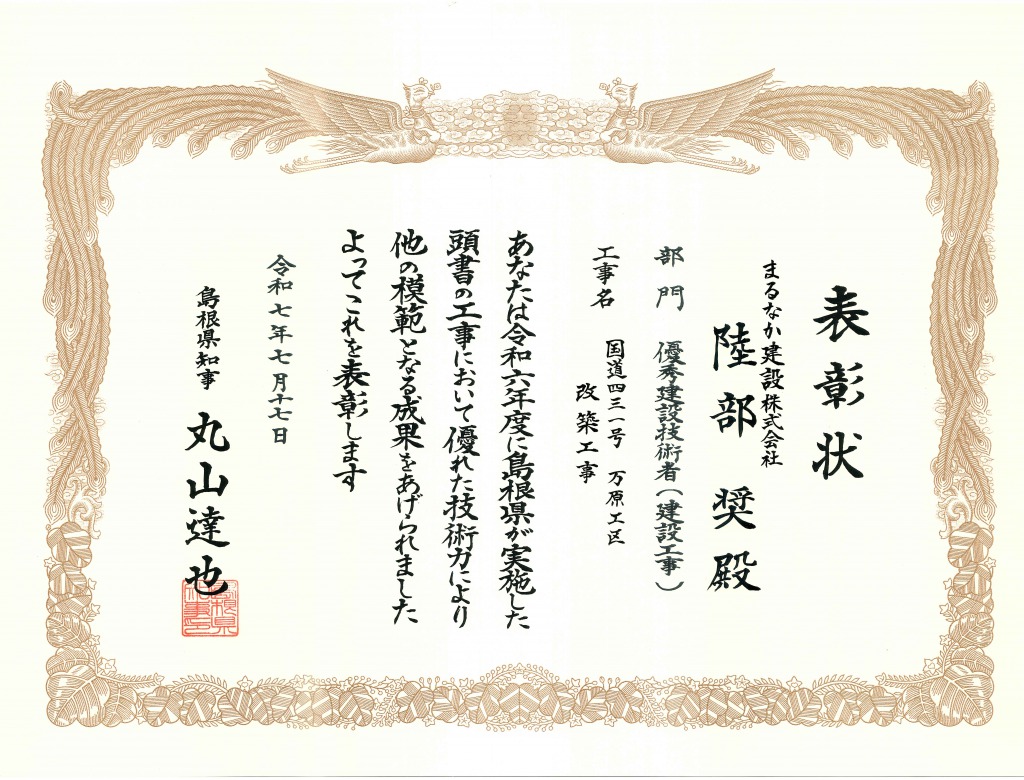 表彰状
まるなか建設株式会社
陸部 奨 殿
部門 優秀建設技術者(建設工事)
工事名 国道四三一号 万原工区
改築工事
あなたは令和六年度に島根県が実施した
頭書の工事において優れた技術力により
他の模範となる成果をあげられました
よってこれを表彰します
令和七年七月十七日
島根県知事 丸山達也
島根県知事印